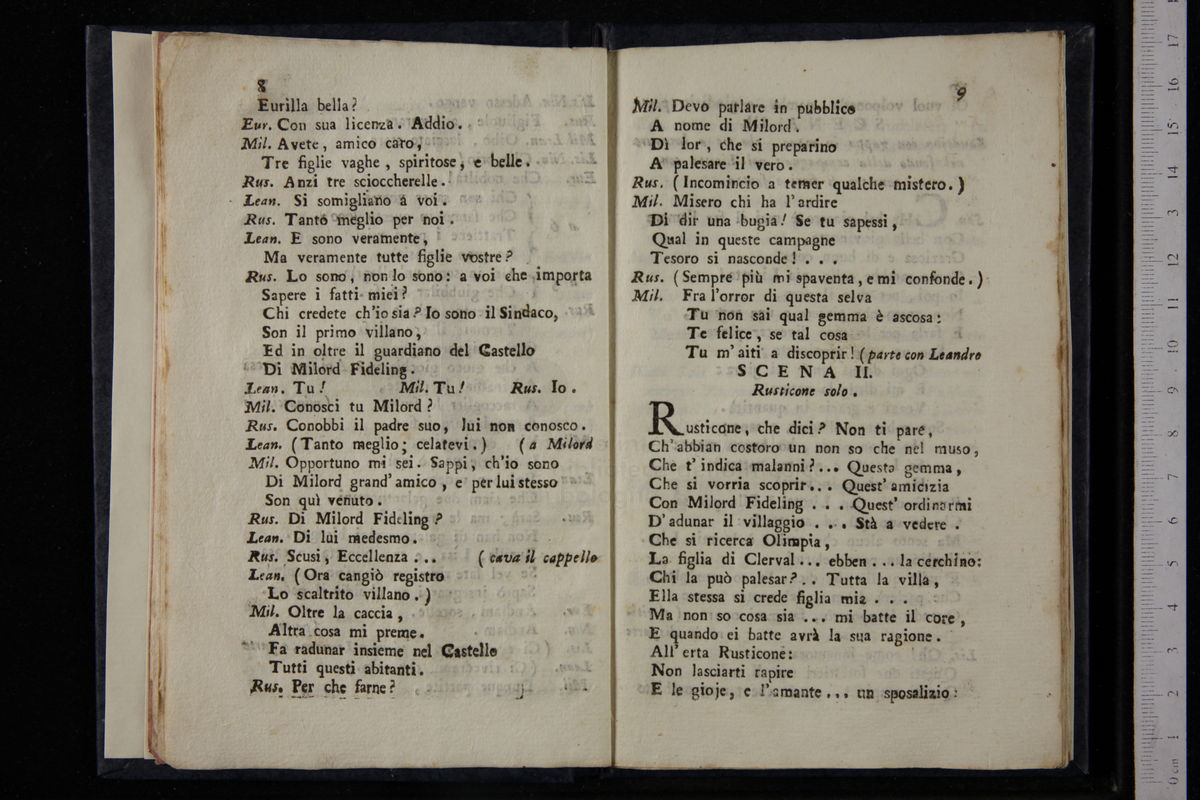 8
Eurilla bella?
Eur. Con sua licenza. Addio.
Mil. Avete, amico caro,
Tre figlie vaghe, spiritose, e belle.
Rus. Anzi tre scioccherelle.
Lean. Si somigliano a voi.
Rus. Tanto meglio per noi.
Lean. E sono veramente,
Ma veramente tutte figlie vostre?
Rus. Lo sono, non lo sono: a voi che importa
Sapere i fatti miei?
Chi credete ch'io sia? Io sono il Sindaco,
Son il primo villano,
Ed in oltre il guardiano del Castello
Di Milord Fideling.
Lean. Tu! Mil. Tu! Rus. Io.
Mil. Conosci tu Milord?
Rus. Conobbi il padre suo, lui non conosco.
Lean. (Tanto meglio; celatevi.) (a Milord
Mil. Opportuno mi sei. Sappi, ch'io sono
Di Milord grand'amico, e per lui stesso
Son quì venuto.
Rus. Di Milord Fideling?
Lean. Di lui medesmo.
Rus. Scusi, Eccellenza... (cava il cappello
Lean. (Ora cangiò registro
Lo scaltrito villano.)
Mil. Oltre la caccia,
Altra cosa mi preme.
Fa radunar insieme nel Castello
Tutti questi abitanti.
Rus. Per che farne?
9
Mil. Devo parlare in pubblico
A nome di Milord.
Dì lor, che si preparino
A palesare il vero.
Rus. (Incomincio a temer qualche mistero.)
Mil. Misero chi ha l'ardire
Di dir una bugia! Se tu sapessi,
Qual in queste campagne
Tesoro si nasconde!...
Rus. (Sempre più mi spaventa, e mi confonde.)
Mil. Fra l'orror di questa selva
Tu non sai qual gemma è ascosa:
Te felice, se tal cosa
Tu m'aiti a discoprir! (parte con Leandro
SCENA II.
Rusticone solo.
Rusticone, che dici? Non ti pare,
Ch'abbian costoro un non so che nel muso,
Che t'indica malanni?... Questa gemma,
Che si vorria scoprir... Quest'amicizia
Con Milord Fideling... Quest'ordinarmi
D'adunar il villaggio... Stà a vedere.
Che si ricerca Olimpia,
La figlia di Clerval... ebben... la cerchino:
Chi la può palesar?.. Tutta la villa,
Ella stessa si crede figlia mia...
Ma non so cosa sia... mi batte il core,
E quando ei batte avrà la sua ragione.
All'erta Rusticone:
Non lasciarti rapire
E le gioje, e l'amante... un sposalizio:
0 cm 1 2 3 4 5 6 7 8 9 10 11 12 13 14 15 16 17